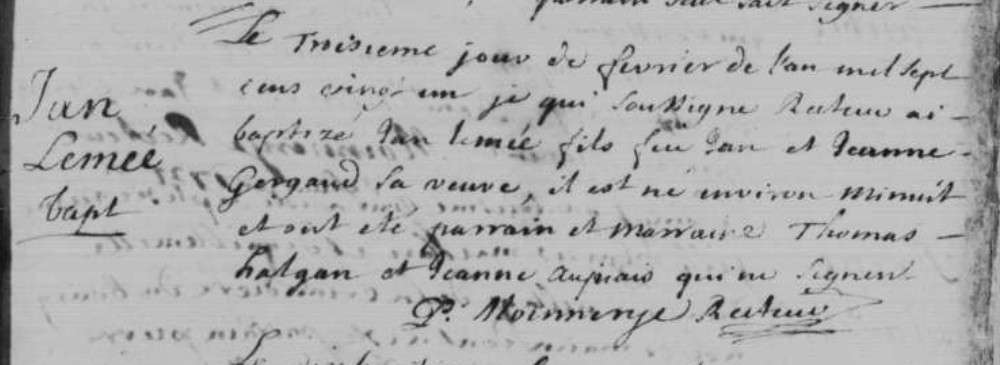 parrain seul sait signer —
Le troisieme jour de fevrier de l'an mil sept
cens vingt un je qui soussigne Recteur ai -
baptizé Jan lemée fils feu Jan et Jeanne -
Gergaud sa veuve, il est né environ minuit
et ont eté parrain et marraine Thomas —
halgan et Jeanne aupiais qui ne signent
P. Recteur
Jan
Lemée
bapt